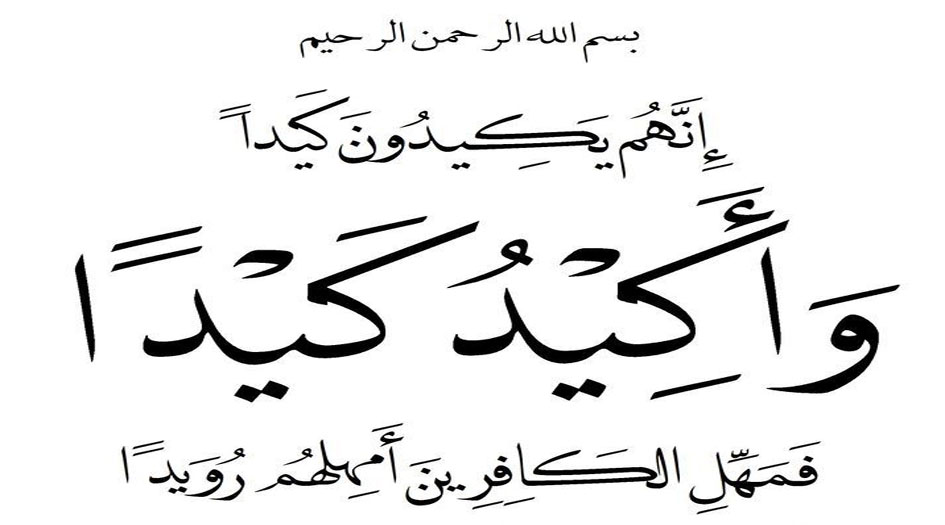 بسم الله الرحمن الرحيم
إِنَّهُم يَكِيدُونَ كَيَداً
وَأَكِيْدُ كَيْدًا
فَمَهِّلِ الكَافِرِينَ أَمهِلهُم رُوَيدًا